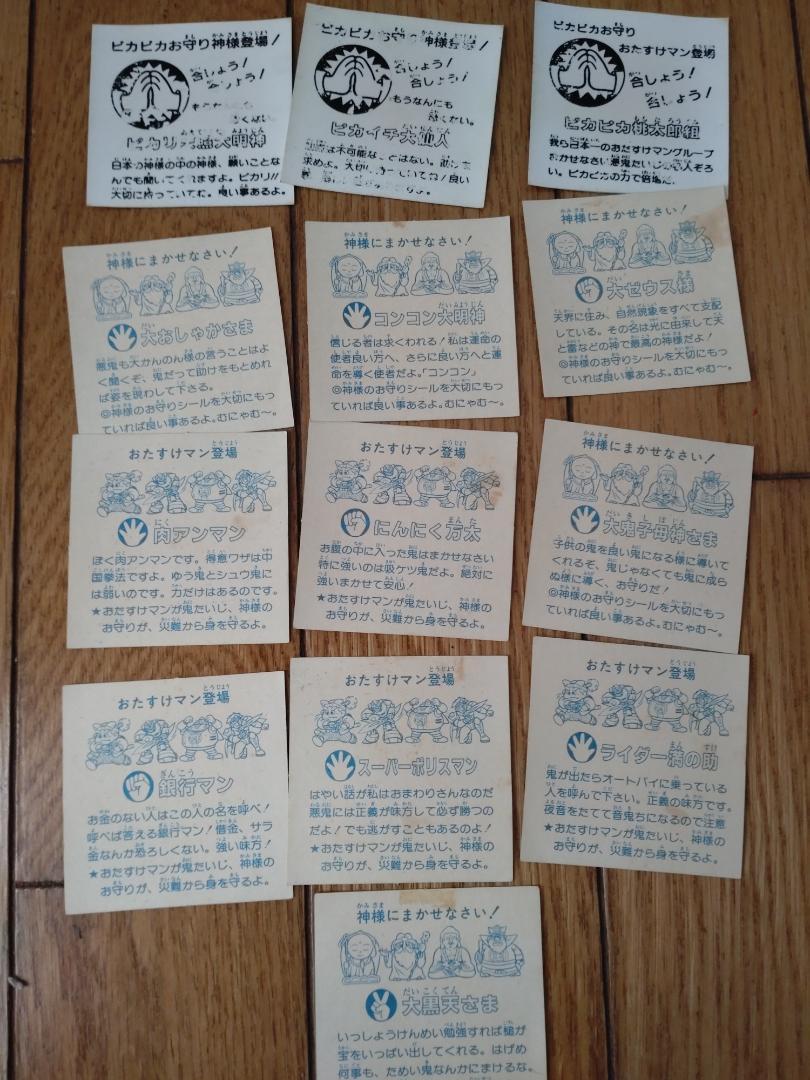 ピカピカお守り神様登場！
合しょう！
合しょう！
大明神
日本の神様の中の神様、願いことな
んでも聞いてくれますよ。ピカリ!!
大切に持っていてね。良い事あるよ。
ピカピカお守り神様登場！
合しょう！
合しょう！
もうなんにも
ピカイチ大仙人
は不可能な ではない。
求めよ。大切に していてね！良い
ピカピカお守り
おたすけマン登場
合しょう！
合しょう！
ピカピカ桃太郎組
我ら日本一のおたすけマングループ
おかせなさい悪鬼たいじの 人ぞろ
い。ピカピカの力で倍増だ。
神様にまかせなさい！
大おしゃかさま
悪鬼も大かんのん様の言うことはよ
く聞くぞ、鬼だって助けをもとめれ
ば姿を現わして下さる。
◎神様のお守りシールを大切にもっ
ていれば良い事あるよ。むにゃむ〜。
神様にまかせなさい！
コンコン大明神
信じる者は求くわれる！私は運命の
使者良い方へ、さらに良い方へと運
命を導く使者だよ。「コンコン」
◎神様のお守りシールを大切にもっ
ていれば良い事あるよ。むにゃむ〜。
神様にまかせなさい！
大ゼウス様
天界に住み、自然現象をすべて支配
している。その名は光に由来して天
と雷などの神で最高の神様だよ！
◎神様のお守りシールを大切にもっ
ていれば良い事あるよ。むにゃむ〜。
おたすけマン登場
肉アンマン
ぼく肉アンマンです。得意ワザは中
国拳法ですよ。ゆう鬼とシュウ鬼に
は弱いのです。力だけはあるのです。
★おたすけマンが鬼たいじ、神様の
お守りが、災難から身を守るよ。
おたすけマン登場
にんにく万太
お腹の中に入った鬼はまかせなさい
特に強いのは吸ケツ鬼だよ。絶対に
強いまかせて安心！
★おたすけマンが鬼たいじ、神様の
お守りが、災難から身を守るよ。
神様にまかせなさい！
大鬼子母神さま
子供の鬼を良い鬼になる様に導いて
くれるぞ、鬼じゃなくても鬼に成ら
ぬ様に導く、お守りだ！
◎神様のお守りシールを大切にもっ
ていれば良い事あるよ。むにゃむ〜。
おたすけマン登場
銀行マン
お金のない人はこの人の名を呼べ！
呼べば答える銀行マン！借金、サラ
金なんか恐ろしくない。強い味方！
★おたすけマンが鬼たいじ、神様の
お守りが、災難から身を守るよ。
おたすけマン登場
スーパーポリスマン
はやい話が私はおまわりさんなのだ
悪鬼には正義が味方して必ず勝つの
だよ！でも逃がすこともあるのよ！
★おたすけマンが鬼たいじ、神様の
お守りが、災難から身を守るよ。
おたすけマン登場
ライダー満の助
鬼が出たらオートバイに乗っている
人を呼んで下さい。正義の味方です。
夜音をたてて音鬼ちになるので注意
★おたすけマンが鬼たいじ、神様の
お守りが、災難から身を守るよ。
神様にまかせなさい！
大黒天さま
いっしょうけんめい勉強すれば槌が
宝をいっぱい出してくれる。はげめ
何事も、ためい鬼なんかにまけるな。